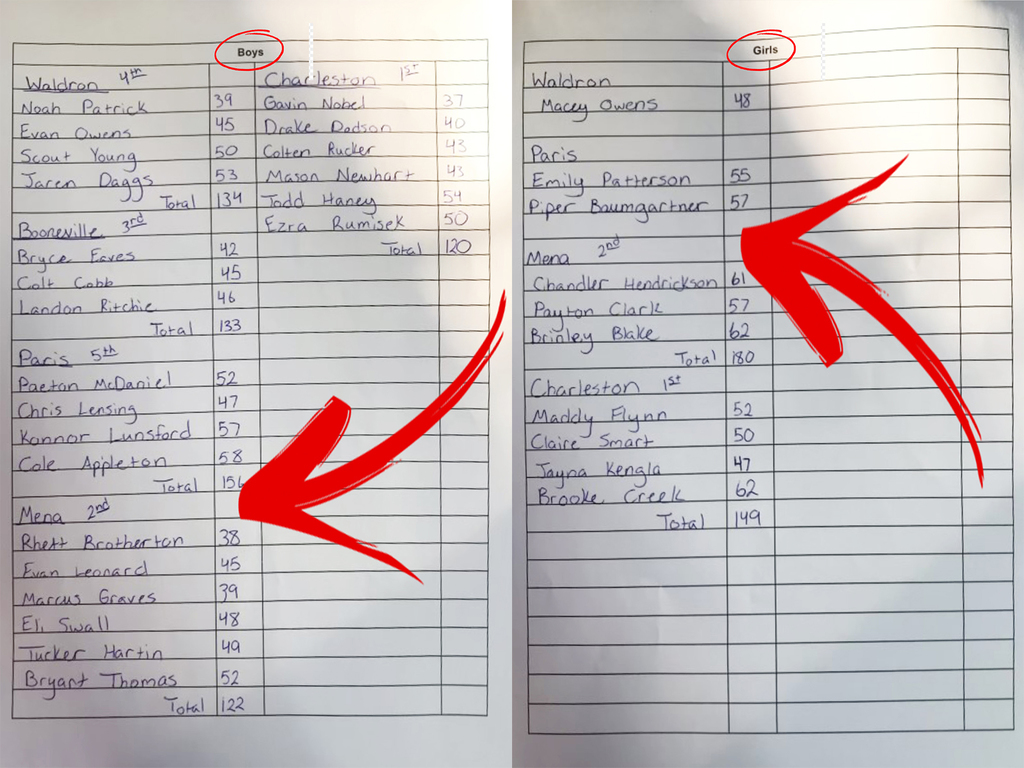 Boys
Waldron 4th
Noah Patrick 39
Evan Owens 45
Scout Young 50
Jaren Daggs 53
Total 134
Booneville 3rd
Bryce Eaves 42
Colt Cobb 45
Landon Ritchie 46
Total 133
Paris 5th
Paetan McDaniel 52
Chris Lensing 47
Konnor Lunsford 57
Cole Appleton 58
Total
Mena 2nd
Rhett Brotherton 38
Evan Leonard 45
Marcus Graves 39
Eli Swall 48
Tucker Hartin 49
Bryant Thomas 52
Total 122
Charleston 1st
Gavin Nobel 37
Drake Dodson 40
Colten Rucker 43
Mason Newhart 43
Todd Haney 54
Ezra Rumisek 50
Total 120
Girls
Waldron
Macey Owens 48
Paris
Emily Patterson 55
Piper Baumgartner 57
Mena 2nd
Chandler Hendrickson 61
Payton Clark 57
Brinley Blake 62
Total 180
Charleston 1st
Maddy Flynn 52
Claire Smart 50
Jayna Kengla 47
Brooke Creek 62
Total 149